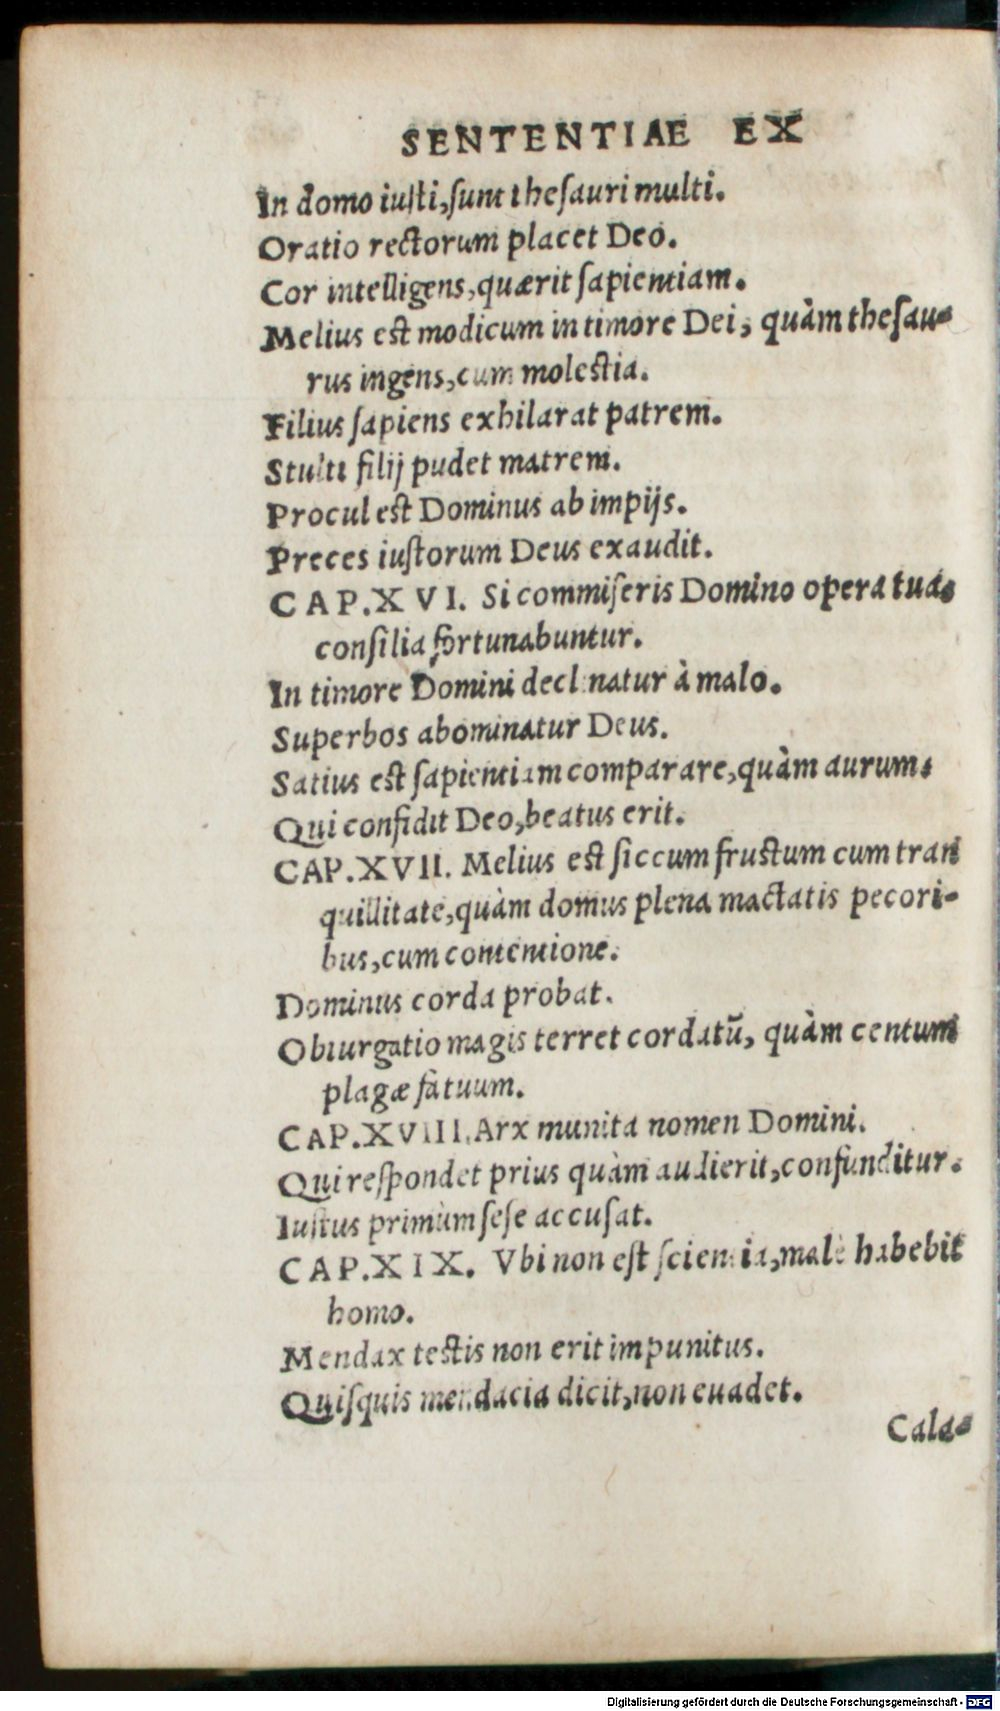 SENTENTIAE EX
In domo iusti, sunt thesauri multi.
Oratio rectorum placet Deo.
Cor intelligens, quærit sapientiam.
Melius est modicum in timore Dei, quàm thesau-
rus ingens, cum molestia.
Filius sapiens exhilarat patrem.
Stulti filij pudet matrem.
Procul est Dominus ab impijs.
Preces iustorum Deus exaudit.
CAP. XVI. Si commiseris Domino opera tua,
consilia fortunabuntur.
In timore Domini declinatur à malo.
Superbos abominatur Deus.
Satius est sapientiam comparare, quàm aurum.
Qui confidit Deo, beatus erit.
CAP. XVII. Melius est siccum frustum cum tran
quillitate, quàm domus plena mactatis pecori-
bus, cum contentione.
Dominus corda probat.
Obiurgatio magis terret cordatũ, quàm centum
plagæ fatuum.
CAP. XVIII. Arx munita nomen Domini.
Qui respondet prius quàm audierit, confunditur.
Iustus primùm sese accusat.
CAP. XIX. Vbi non est scientia, malè habebit
homo.
Mendax testis non erit impunitus.
Quisquis mendacia dicit, non euadet.
Cala-
Digitalisierung gefördert durch die Deutsche Forschungsgemeinschaft - DFG